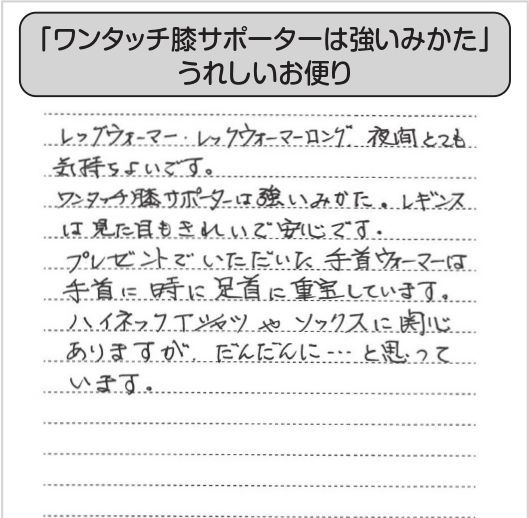 「ワンタッチ膝サポーターは強いみかた」
うれしいお便り
レッグウォーマー・レックウォーマーロング 夜間とても
気持ちよいです。
ワンタッチ膝サポーターは強いみかた。レギンス
は見た目もきれいで安心です。
プレゼントでいただいた手首ウォーマーは
手首に時に足首に重宝しています。
ハイネックTシャツやソックスに関心
ありますが、だんだんに…と思って
います。